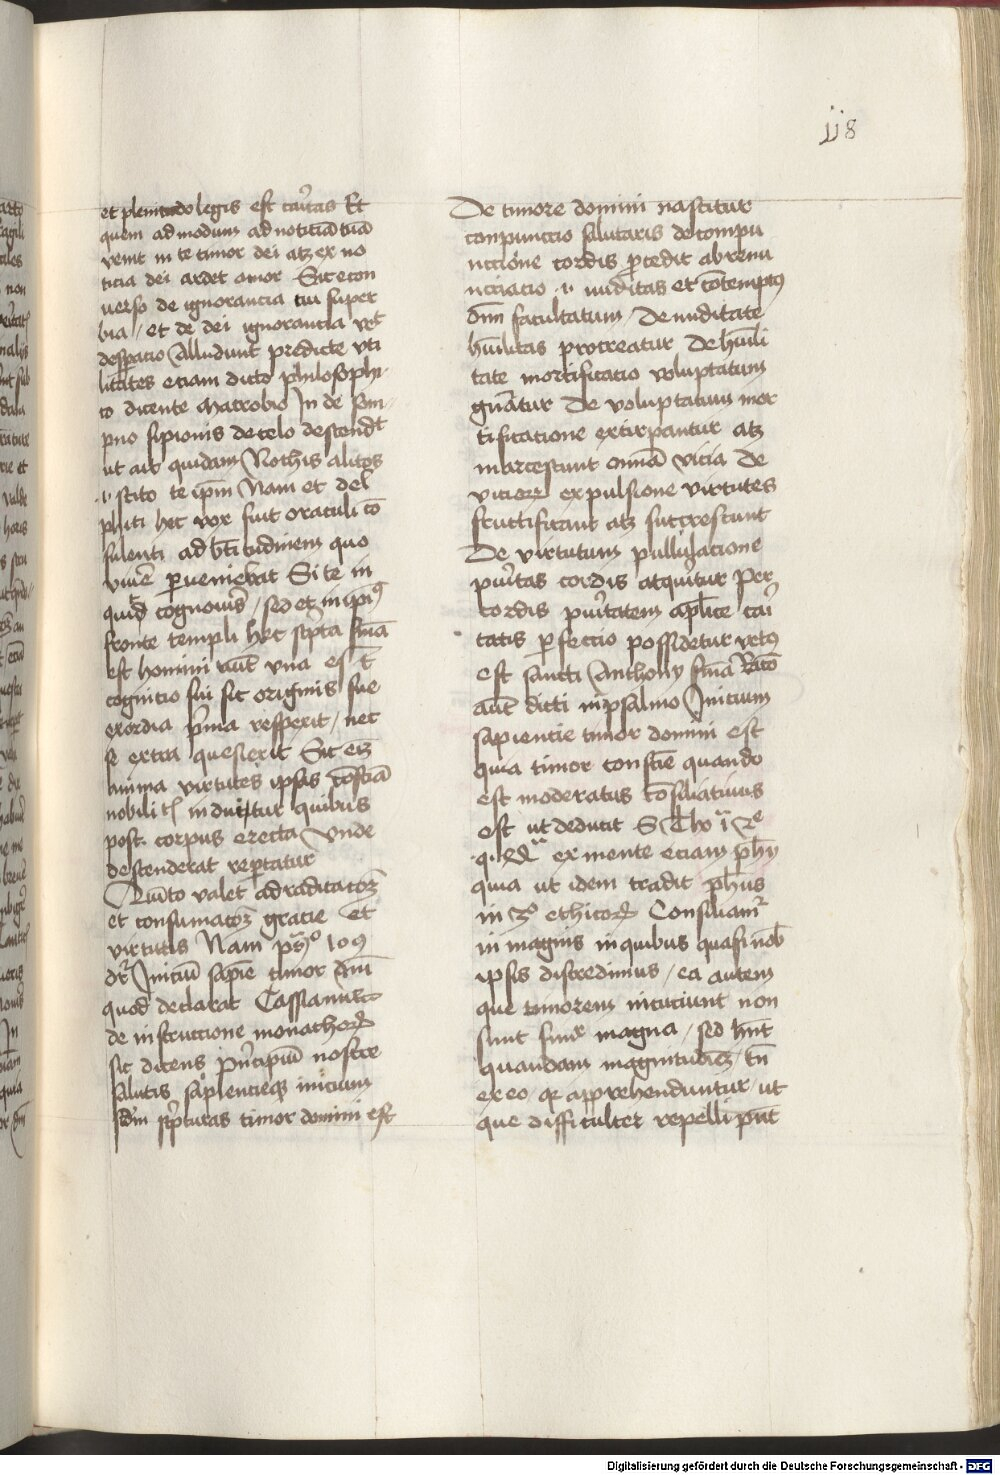 118
et plenitudo legis est cari̾tas Et
quem ad modum ad noticiā tuā
venit in te timor dei atqꝫ ex no
ticia dei ardet amor Sic econ
uerso de ignorancia tui super
bia / et de dei ignorancia
despacio Alludunt predicte uti
litates eciam dicto philosophi
co dicente Macrobio In de som
pno sipionis de celo descend̾t
ut ait quidam Nothis alitos
.i. scito te ip̄m Nam et del
phiti hec vox fuit oraculi cō
sulenti ad bt̄itudinem quo
perveniebat Si te in
quid cognoveris / sed et in ipiꝰ
fronte templi hec scp̄ta
est homini aūt una est
cognicio sui sic originis sue
exordia p̄ma respexerit / nec
se extra quesierit Sic
anima virtutes ipsas cōsciā
nobili induitur quibus
post corpus erecta Unde
descenderat reportatur
valet ad
et consumatoꝫ gracie et
virtutis Nam 109
dr̄ Iniciū sapīe timor dn̄i
quod declarat Cassianus
de instruccione monachoꝝ
sic dicens Pn̄cipiū nostre
salutis sapiencieqꝫ inicium
sc̄dm scp̄turas timor domini est
De timore domini nascitur
conpunccio salutaris de compu
nccione cordis procedit abrenu
nciacio .i. nuditas et cōtemptꝰ
om̄m facultatum / De nuditate
hūilitas procreatur De hūili
tate mortificatio voluptatum
gnāatur De voluptatum mor
tificatione extirpantur atqꝫ
marcescunt om̄ia vicia De
vicioꝝ expulsione virtutes
fructificant atqꝫ succrescunt
De virtutum pullulacione
puri̾tas cordis acquiritur Per
cordis puri̾tatem apl̄ice cari
tatis perfeccio possidetur
est sancti Anthony
aūt dicti in psalmo Inicium
sapiencie timor domini est
quia timor quando
est moderatus cōsiliativus
est ut deducit S Tho
ex mente eciam ph̄y
quia ut idem tradit ph̄us
in 3º ethicoꝝ Consiliamr̄
in magnis in quibus quasi
ipsis discredimus / ea autem
que timorem incuciunt non
sunt magna / sed hn̄t
quandam magnitudinē / tū
ex eo qꝛ apprehenduntur / ut
que difficulter repelli pn̄t
Digitalisierung gefördert durch die Deutsche Forschungsgemeinschaft - DFG